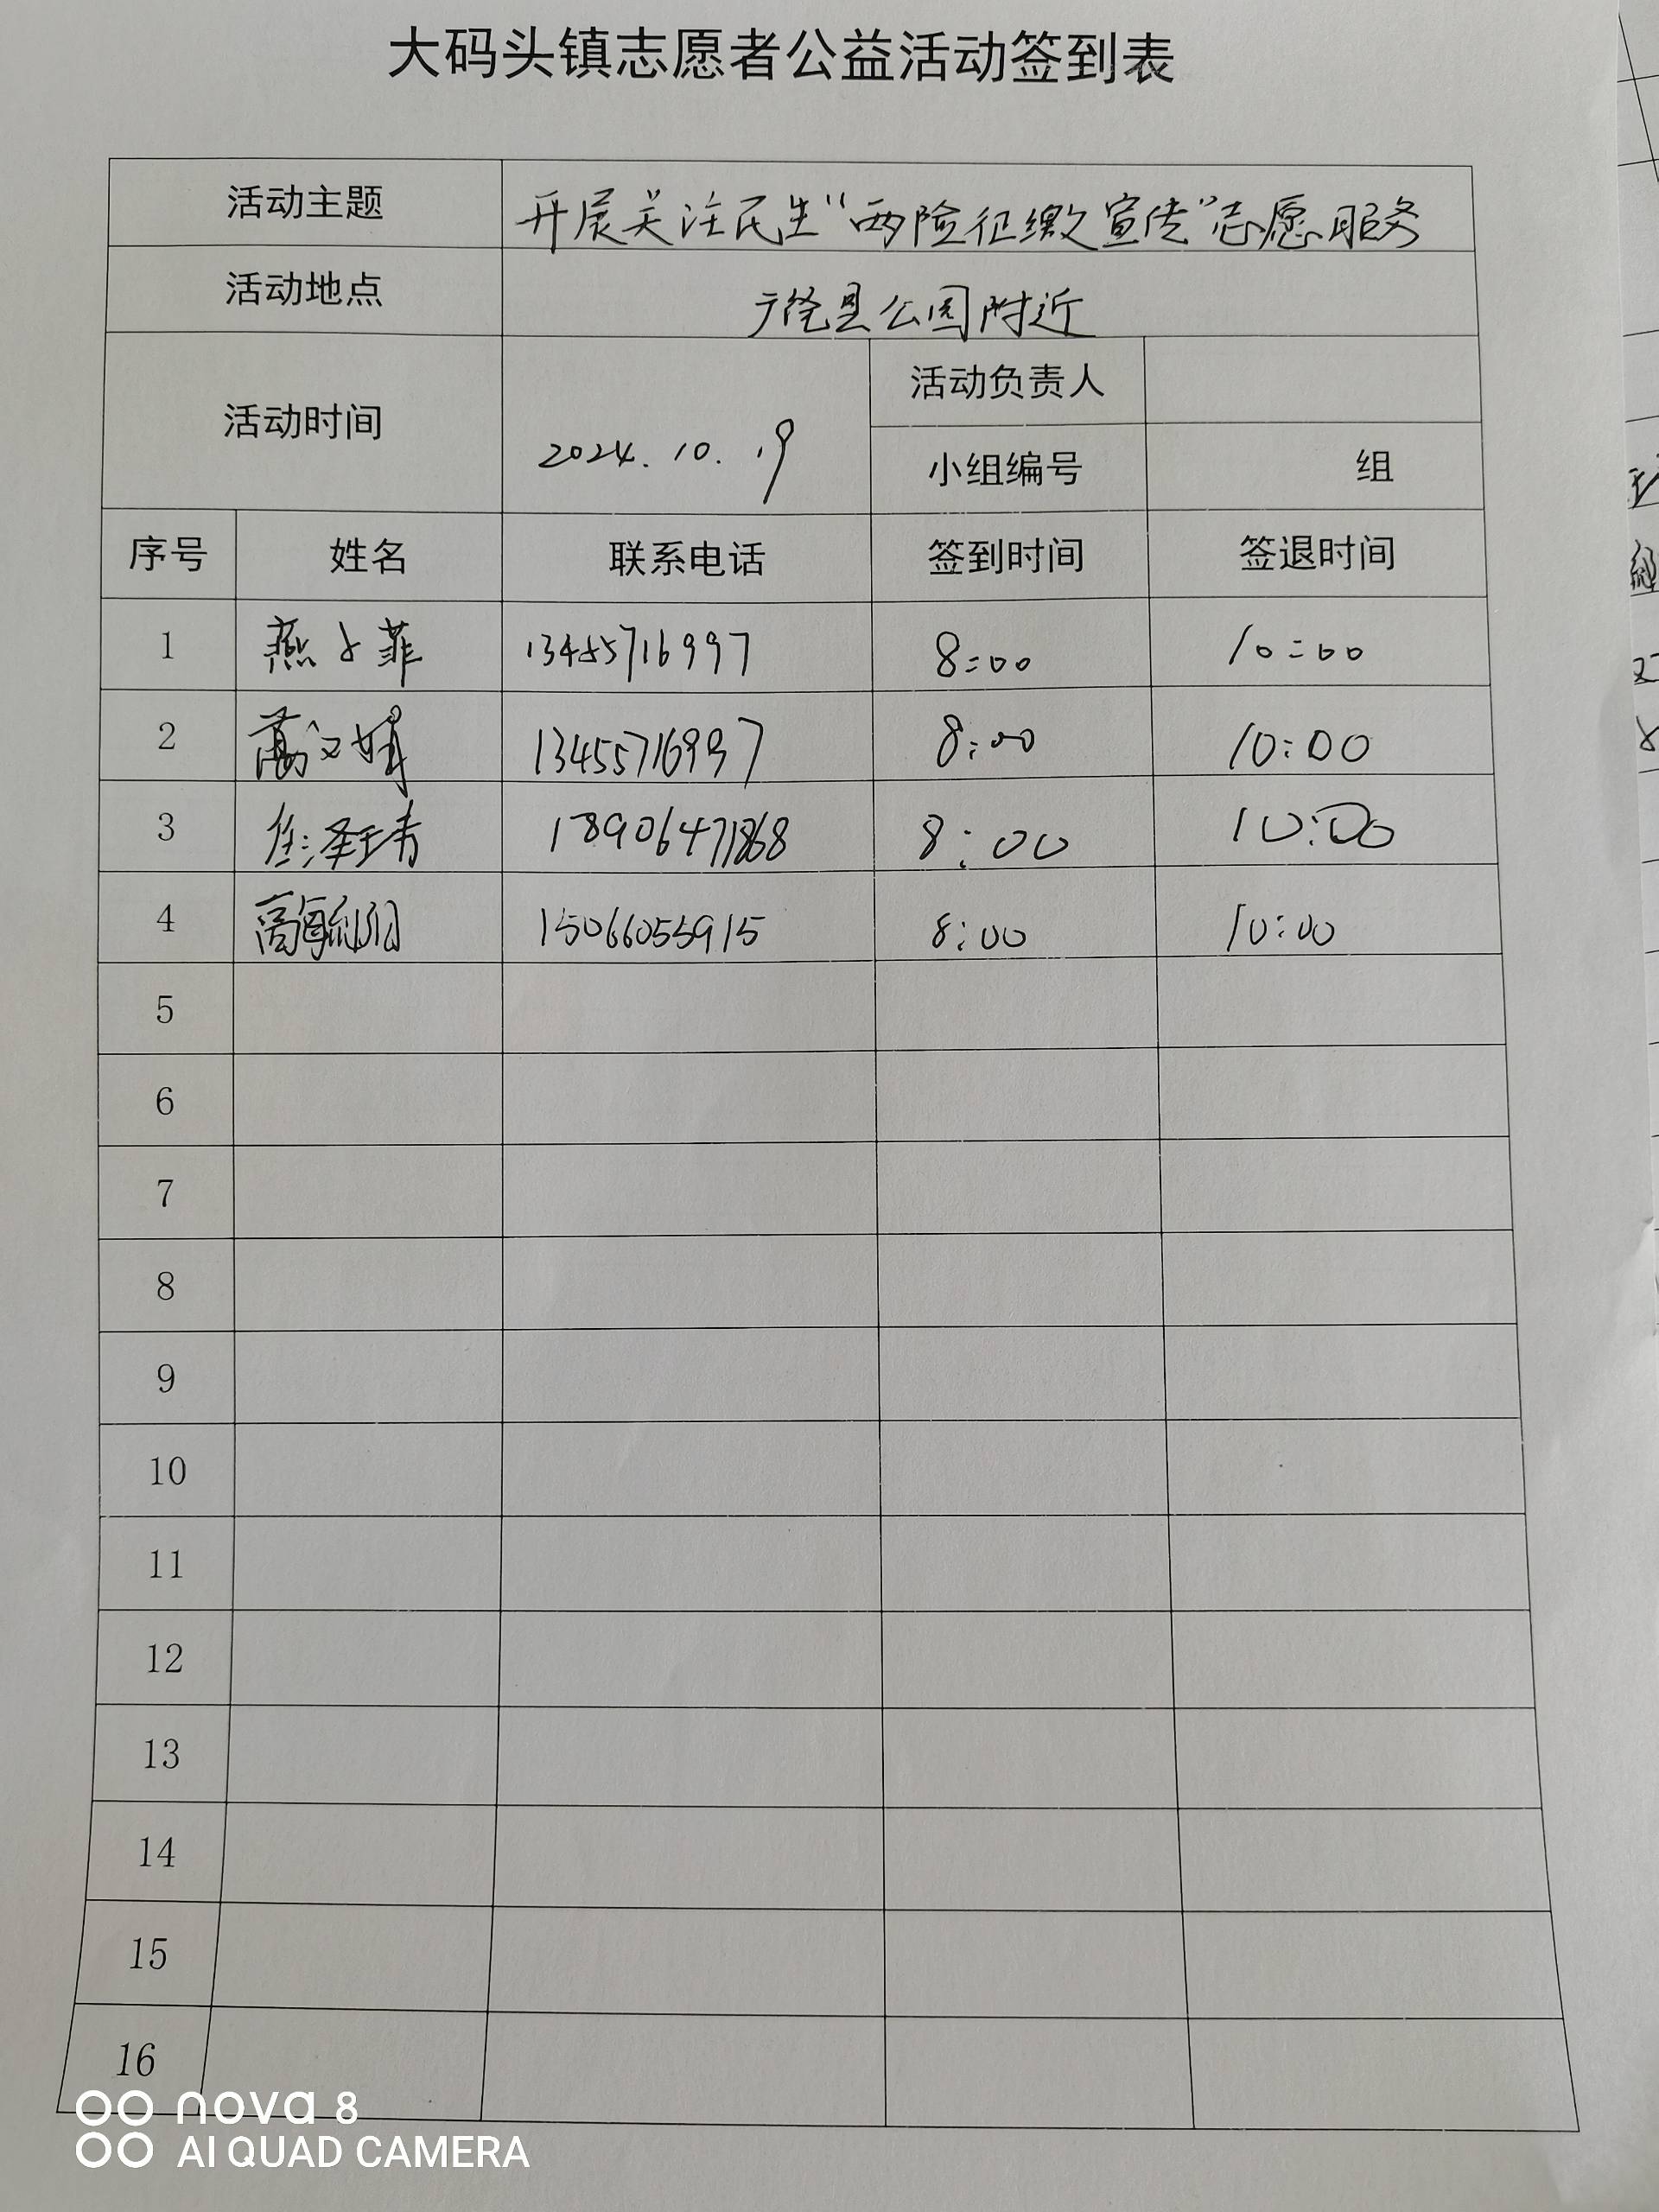 大码头镇志愿者公益活动签到表
活动主题 开展关注民生“两险征缴宣传”志愿服务
活动地点 广饶县公园附近
活动时间 2024.10.19 活动负责人
小组编号 组
序号 姓名 联系电话 签到时间 签退时间
1 燕 菲 13455716997 8:00 10:00
2 高文娟 13455716997 8:00 10:00
3 任泽青 18906471868 8:00 10:00
4 高 15066055915 8:00 10:00
5
6
7
8
9
10
11
12
13
14
15
16
nova 8
AI QUAD CAMERA